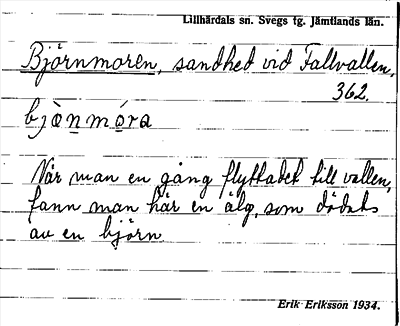 Lillhärdals sn. Svegs tg. Jämtlands län.
Björnmoren, sandhed vid Fallvallen,
362.
bjὼn̲mó̲ra
När man en gång flyttadet till vallen,
fann man här en älg, som dödats
av en björn
Erik Eriksson 1934.